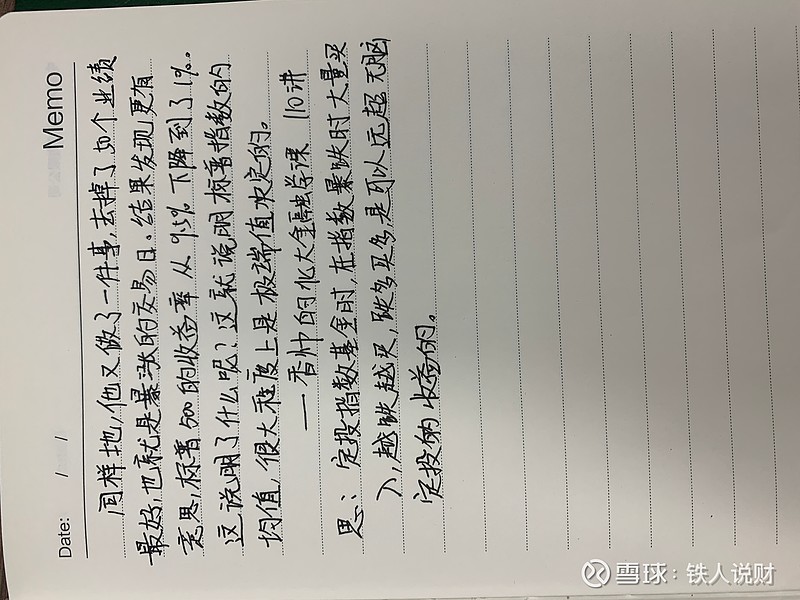 Memo
Date: / /
同样地,他又做了一件事,去掉了50个业绩
最好,也就是暴涨的交易日。结果发现更有
意思,标普500的收益率从9.5%下降到了1%。
这说明了什么呢?这就说明标普指数的
均值,很大程度上是极端值决定的。
—香帅的北大金融学课 110讲
思:定投指数基金时,在指数暴跌时大量买
入,越跌越买,跌多买多是可以远超无脑
定投的收益的。
雪球:铁人说财